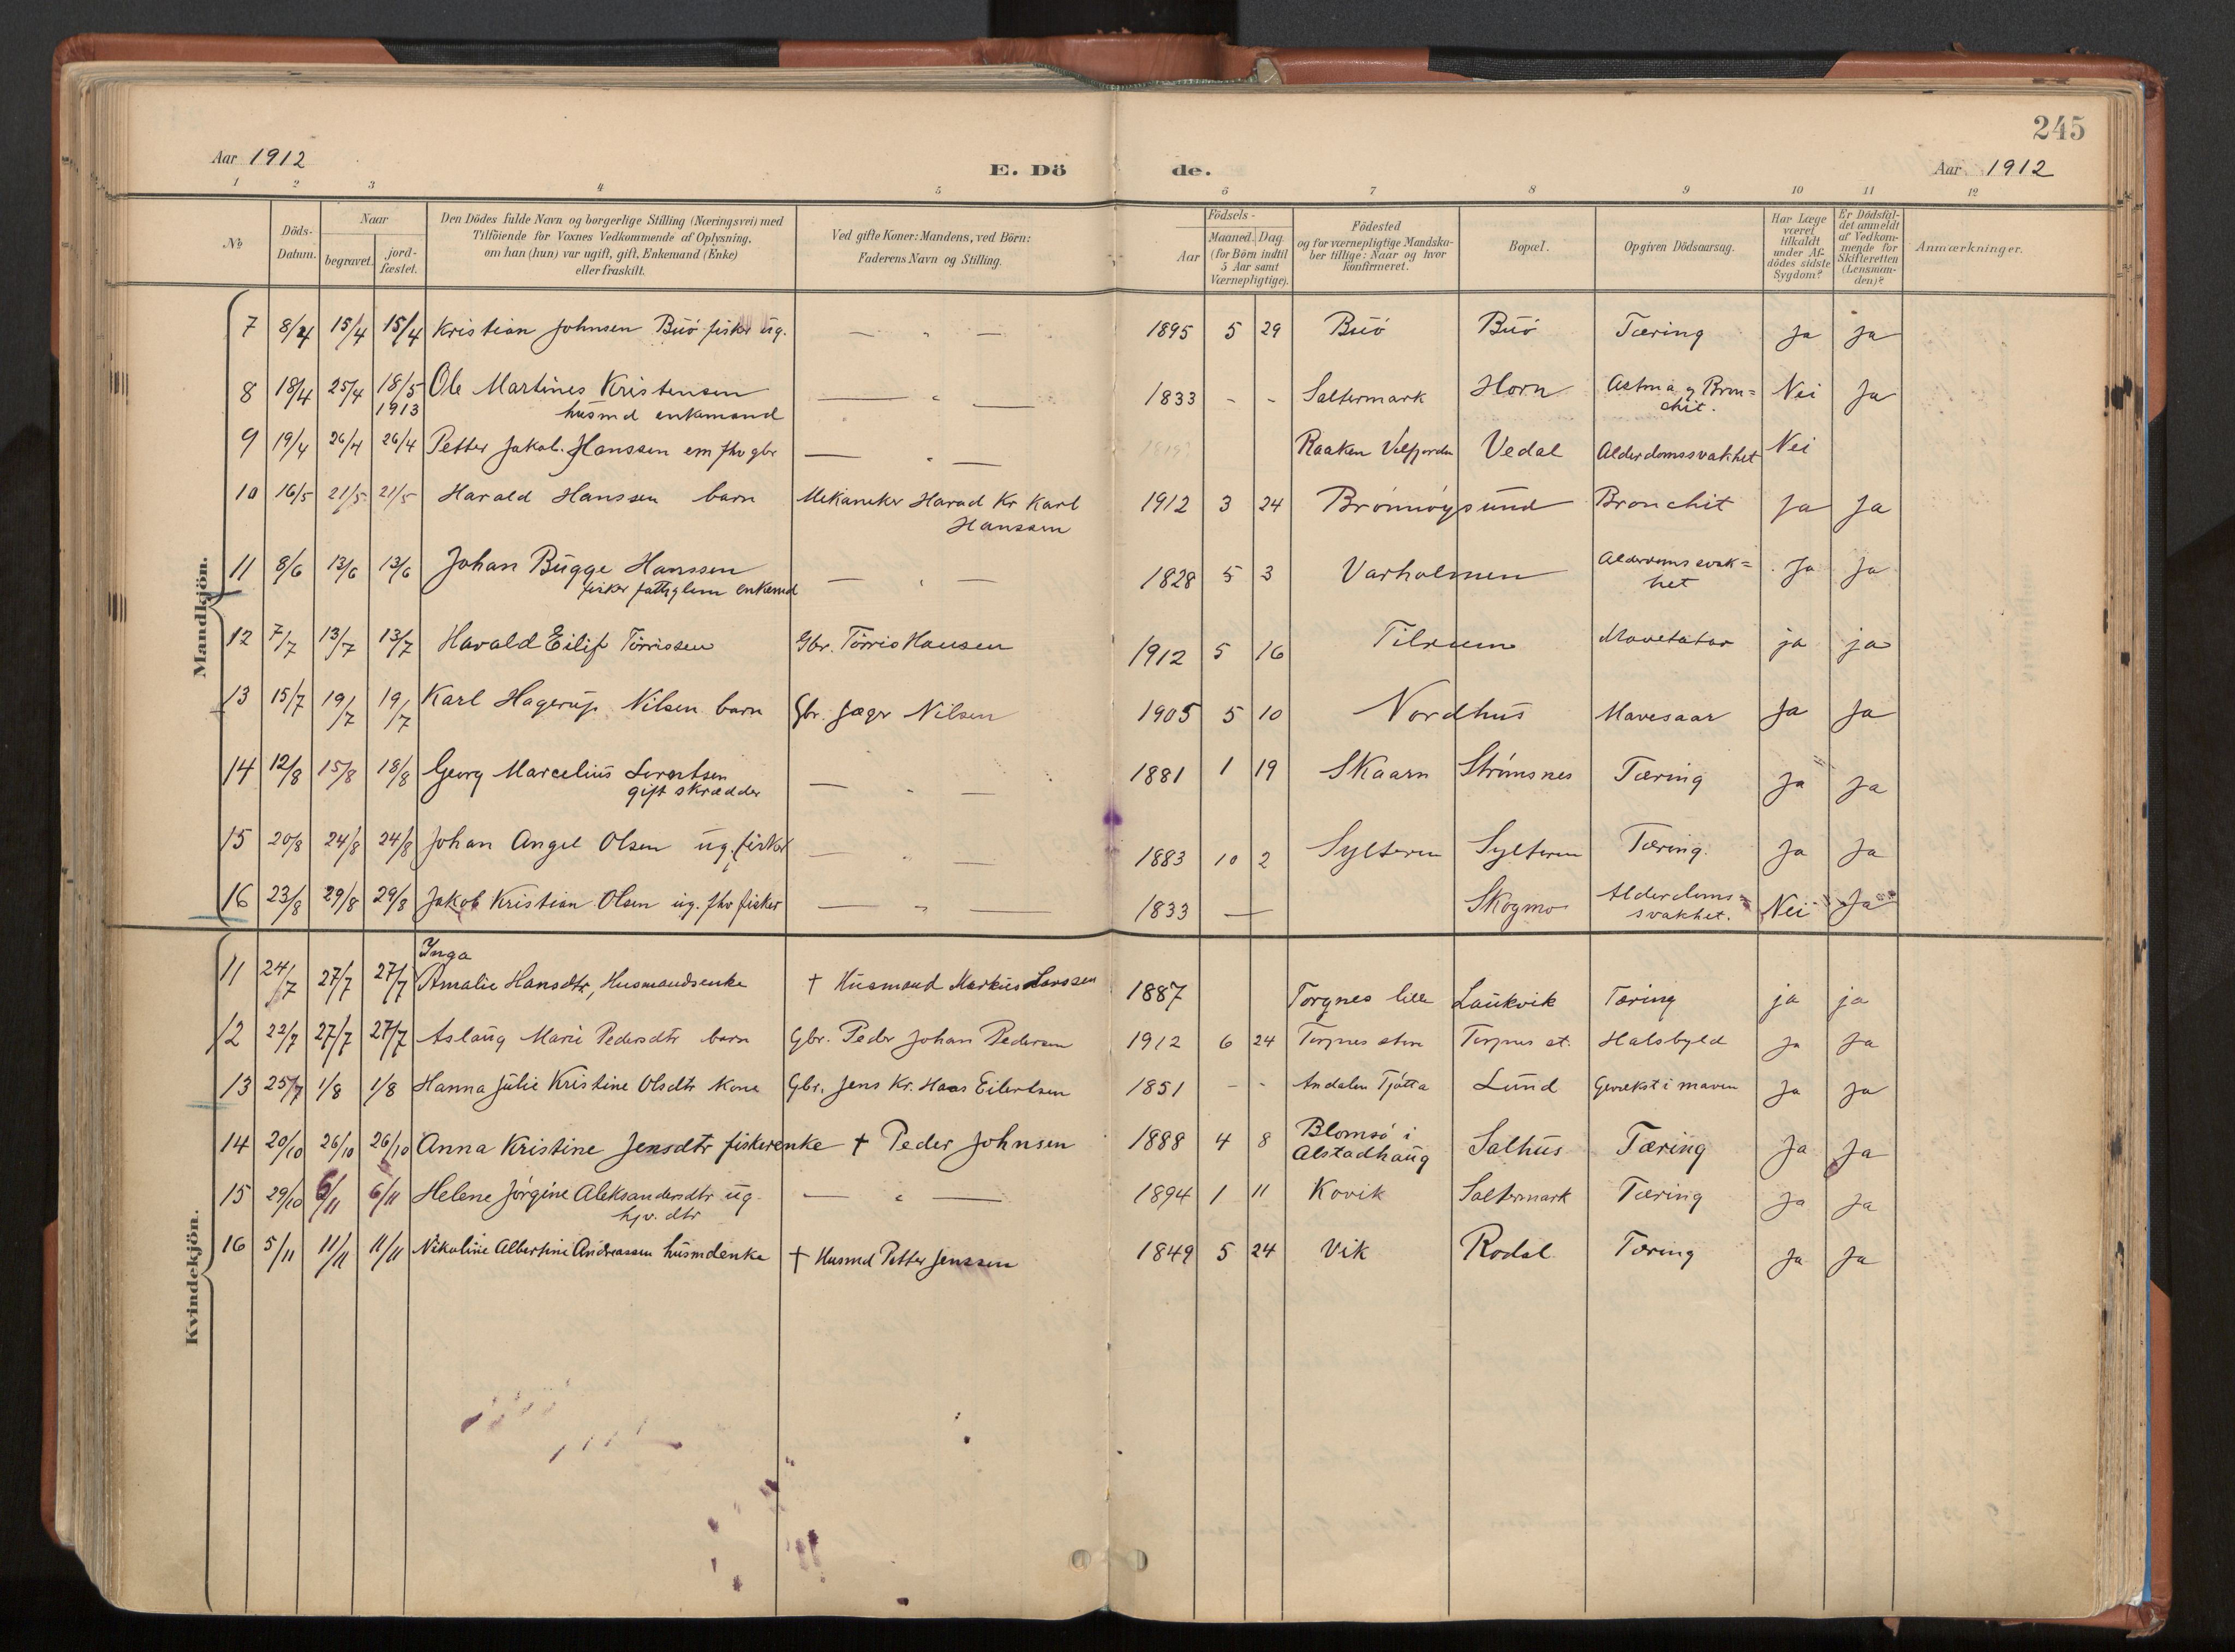 245
Aar 1912
E. Dö
de.
Aar 1912
1 2 3 4 5 6 7 8 9 10 11 12
No
Döds-
Datum.
Naar
begravet.
jord-
fæstet.
Den Dödes fulde Navn og borgerlige Stilling (Næringsvei) med
Tilföiende for Voxnes Vedkommende af Oplysning,
om han (hun) var ugift, gift, Enkemand (Enke)
eller fraskilt.
Ved gifte Koner: Mandens, ved Börn:
Faderens Navn og Stilling.
Födsels-
Aar
Maaned. Dag.
(for Börn indtil
5 Aar samt
Værnepligtige).
Födested
og for værnepligtige Mandska-
ber tillige: Naar og hvor
konfirmeret.
Bopæl.
Opgiven Dödsaarsag.
Har Læge
været
tilkaldt
under Af-
dödes sidste
Sygdom?
Er Dödsfal-
det anmeldt
af Vedkom-
mende for
Skifteretten
(Lensman-
den)?
Anmærkninger.
Mandkjön.
7 8/4 15/4 15/4 Kristian Johnsen Buö fisker ug. — " — 1895 5 29 Buö Buö Tæring Ja Ja
8 18/4 25/4 18/5 Ole Martines Kristensen — " — 1833 - - Saltermark Horn Astma og Bron=
1913 husmd enkemand chit. Nei Ja
9 19/4 26/4 26/4 Petter Jakob Hanssen em fhv gbr — " — Raaken Velfjorden Vedal Alderdomssvakhet Nei
10 16/5 21/5 21/5 Harald Hanssen barn Mekaneker Harad Kr Karl
Hanssen 1912 3 24 Brönnöysund Bronchit Ja Ja
11 8/6 13/6 13/6 Johan Bugge Hanssen — " — 1828 5 3 Varholmen Alderdomssvak=
fisker fattiglem enkemd het Ja Ja
12 7/7 13/7 13/7 Harald Eilif Törrissen Gbr. Törris Hansen 1912 5 16 Tilrem Mavekatar ja ja
13 15/7 19/7 19/7 Karl Hagerup Nilsen barn Gbr. Jæger Nilsen 1905 5 10 Nordhus Mavesaar Ja Ja
14 12/8 15/8 18/8 Georg Marcelius Lorentsen — " — 1881 1 19 Skaarn Strömsnes Tæring Ja Ja
gift skrædder
15 20/8 24/8 24/8 Johan Angel Olsen ug. fisker — " — 1883 10 2 Sylteren Sylteren Tæring. Ja Ja
16 23/8 29/8 29/8 Jakob Kristian Olsen ug. fhv fisker — " — 1833 — Skogmo Alderdoms=
svakhet. Nei Ja
Kvindekjön.
Inga
11 24/7 27/7 27/7 Amalie Hansdtr, Husmandsenke † Husmand Markus Larssen 1887 Torgnes lille Laukvik Tæring ja ja
12 22/7 27/7 27/7 Aslaug Marie Pedersdtr barn Gbr. Peder Johan Pedersen 1912 6 24 Torgnes store Torgnes st. Halsbyld Ja Ja
13 25/7 1/8 1/8 Hanna Julie Kristine Olsdtr Kone Gbr. Jens Kr. Haas Eilertsen 1851 - - Andalen Tjötta Lund Gevækst i maven Ja Ja
14 20/10 26/10 26/10 Anna Kristine Jensdtr fiskerenke † Peder Johnsen 1888 4 8 Blomsö i
Alstadhaug Salhus Tæring Ja Ja
15 29/10 6/11 6/11 Helene Jörgine Aleksandersdtr ug — " — 1894 1 11 Kovik Saltermark Tæring Ja Ja
hjv. dtr
16 5/11 11/11 11/11 Nikoline Albertine Andreassen husmdenke † Husmd Petter Jenssen 1849 5 24 Vik Rodal Tæring Ja Ja